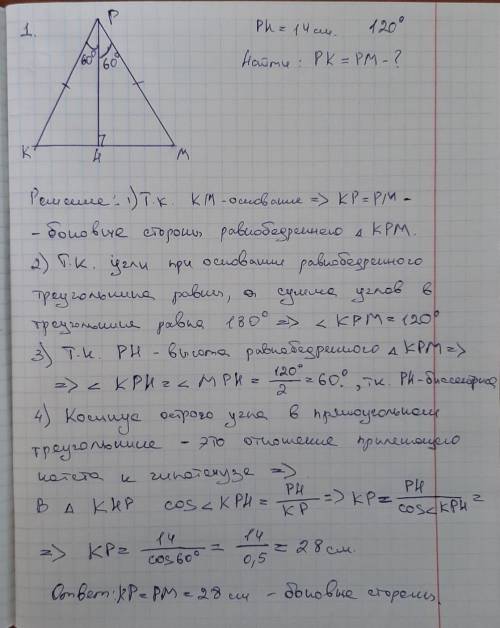 1.
P
PH = 14 см. 120°
60° 60°
Найти: PK = PM - ?
K H M
Решение: 1) Т.к. KM - основание => KP = PM -
- боковые стороны равнобедренного △ KPM.
2) Т.к. углы при основании равнобедренного
треугольника равны, а сумма углов в
треугольнике равна 180° => ∠ KPM = 120°
3) Т.к. PH - высота равнобедренного △ KPM =>
=> ∠ KPH = ∠ MPH = 120°/2 = 60°, т.к. PH - биссектриса
4) Косинус острого угла в прямоугольном
треугольнике - это отношение прилежащего
катета к гипотенузе =>
В △ KHP cos∠KPH = PH/KP => KP = PH/cos∠KPH =
=> KP = 14/cos60° = 14/0,5 = 28 см.
Ответ: KP = PM = 28 см - боковые стороны.